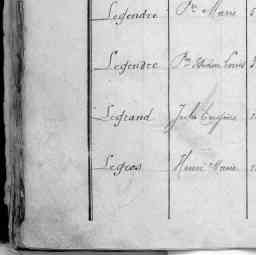 Legendre Pre Marie 5
Legendre Pre Louis
Legrand Jules Eugène
Legros Henri Marie